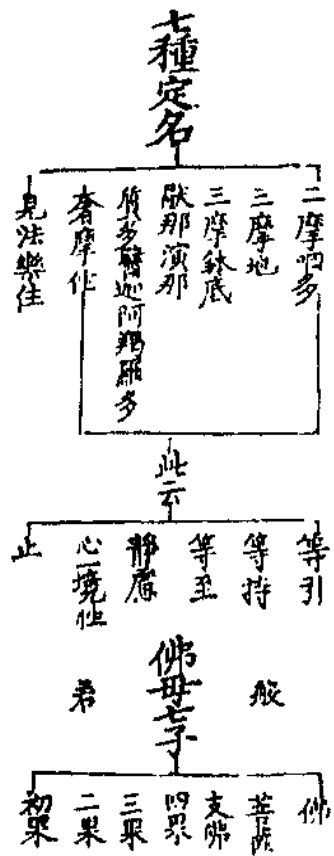 七種定名
三摩呬多
三摩地
三摩鉢底
馱那演那
質多翳迦阿羯羅多
奢摩他
見法樂住
此云
等引
等持
等至
靜慮
心一境性
止
佛母七子
般
若
佛
菩薩
支佛
四果
三果
二果
初果